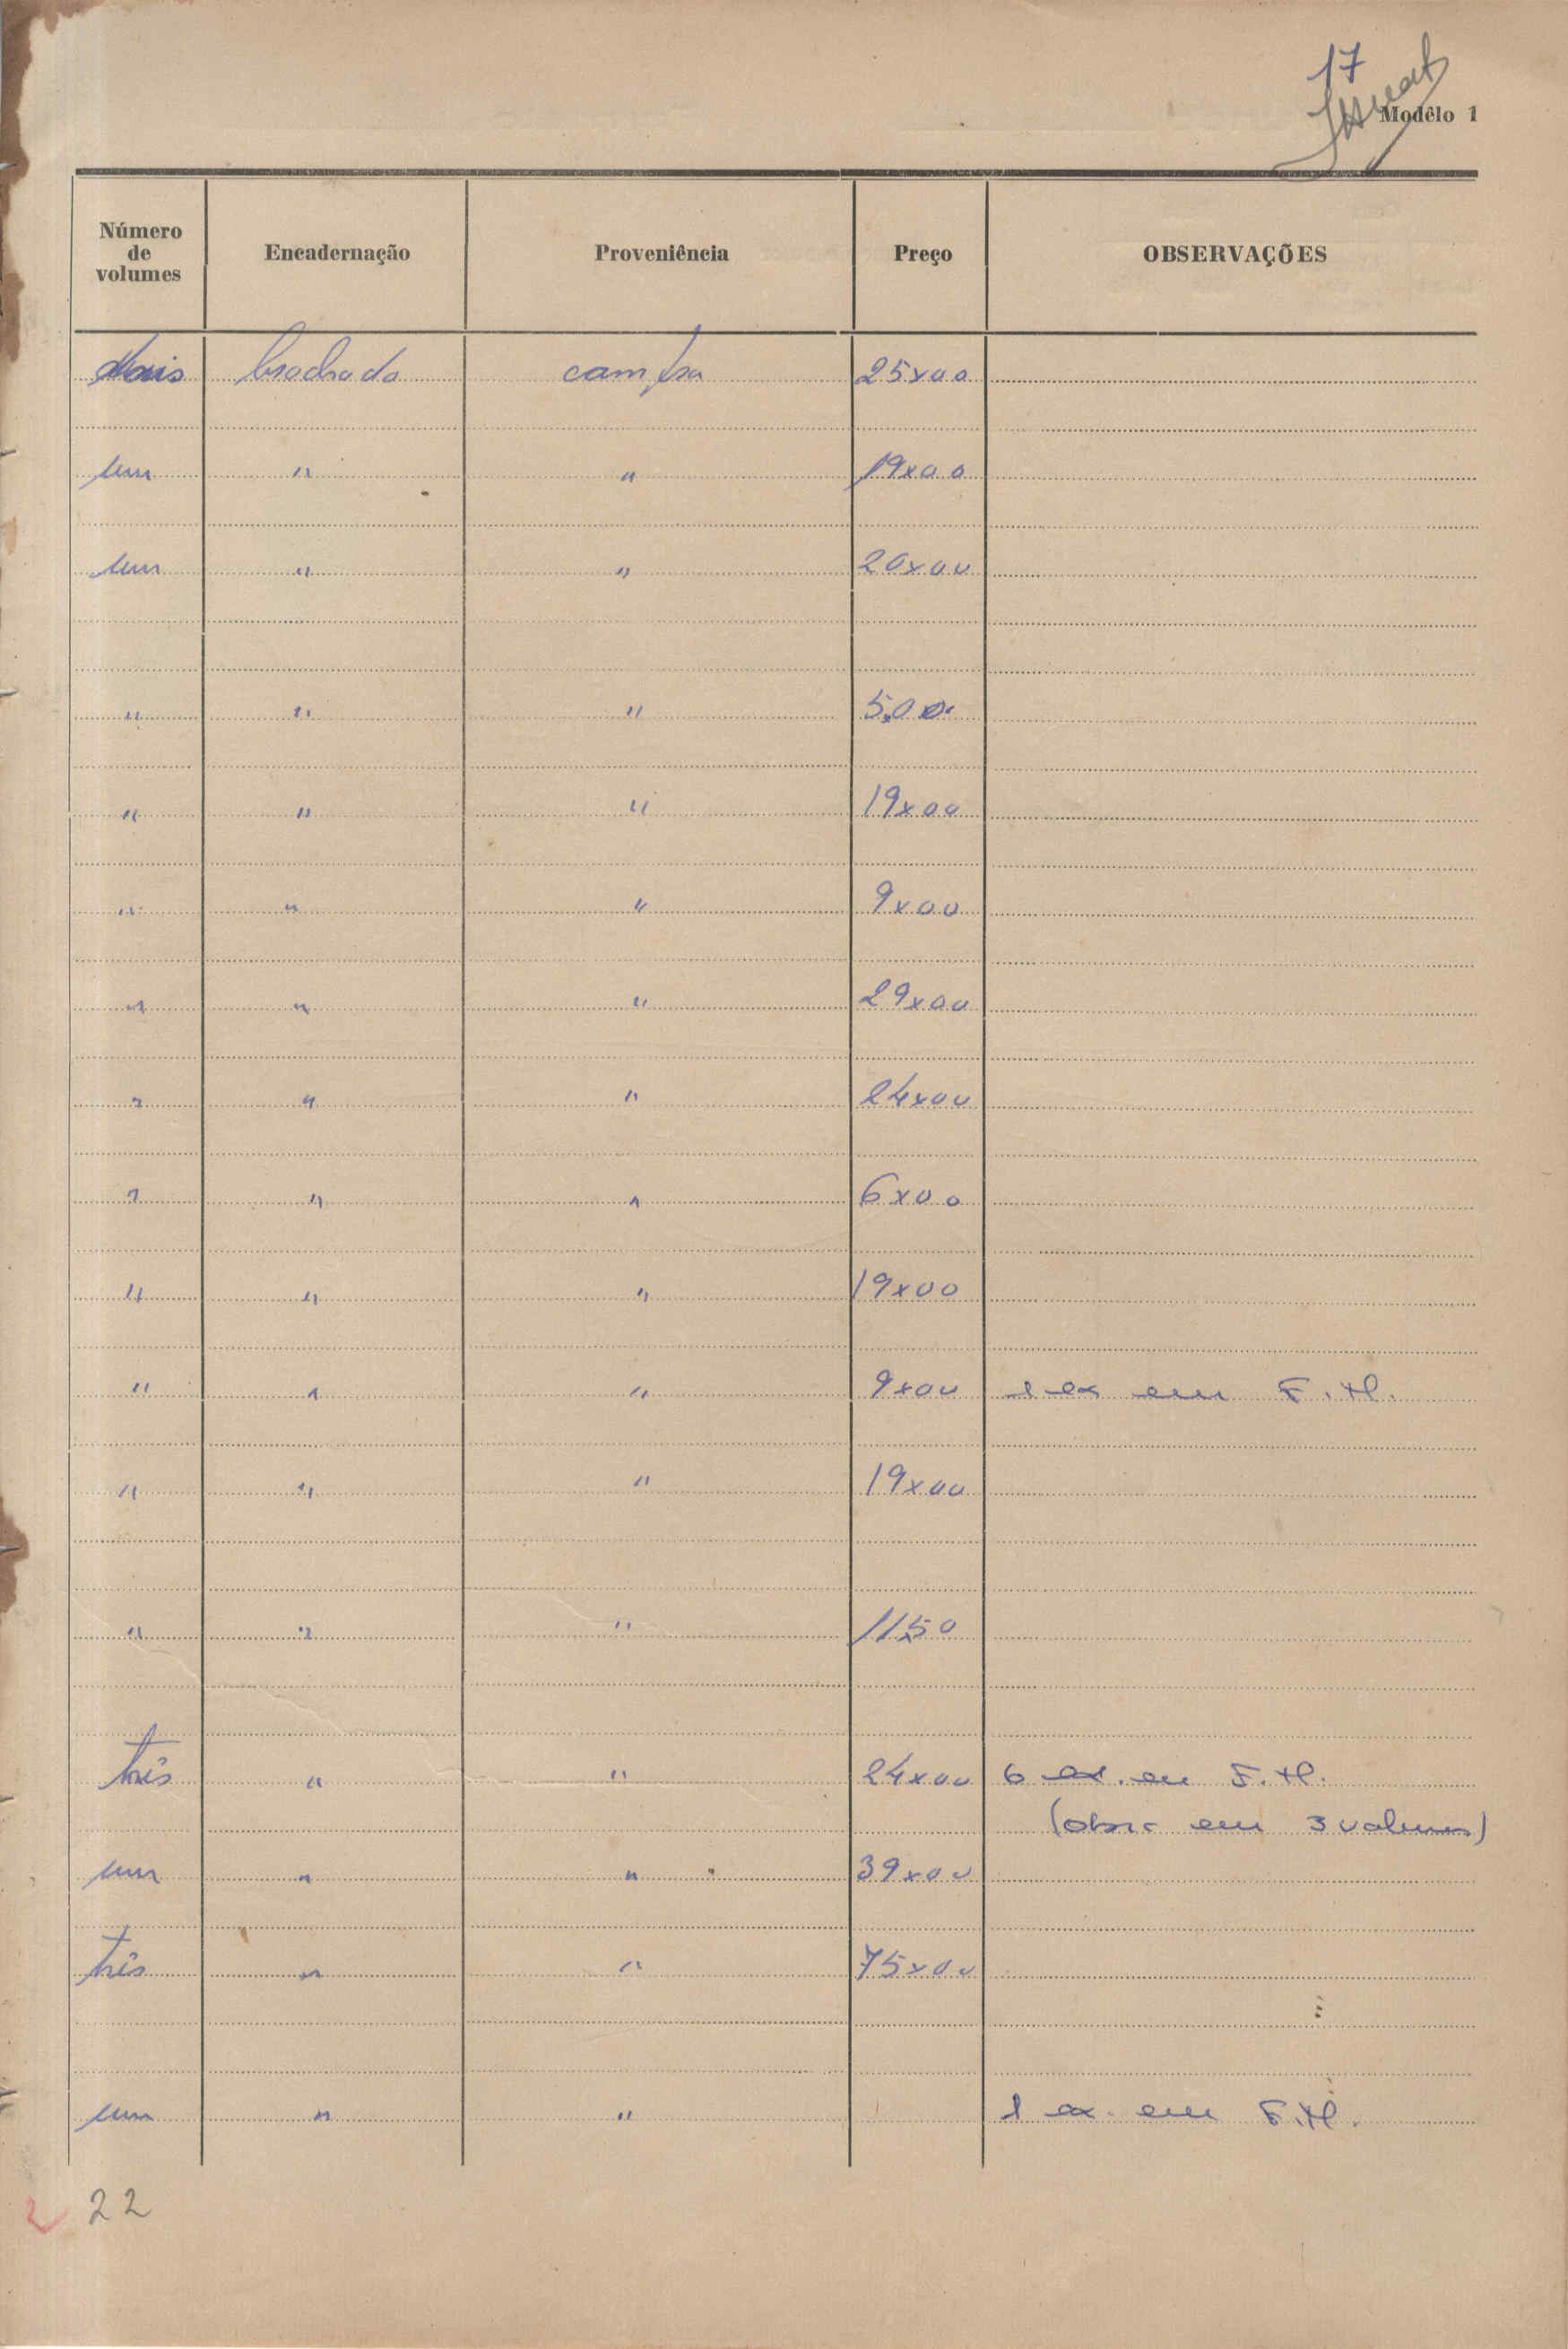 17
Modêlo 1
Número de volumes Encadernação Proveniência Preço OBSERVAÇÕES
dois brochado compra 25x00
um " " 19x00
um " " 20x00
" " " 5x00
" " " 19x00
" " " 9x00
" " " 29x00
" " " 24x00
" " " 6x00
" " " 19x00
" " " 9x00 1 ex em F.H.
" " " 19x00
" " " 11x50
três " " 24x00 6 ex. em F.H.
(obra em 3 volumes)
um " " 39x00
três " " 75x00
um " " 1 ex. em F.H.
22